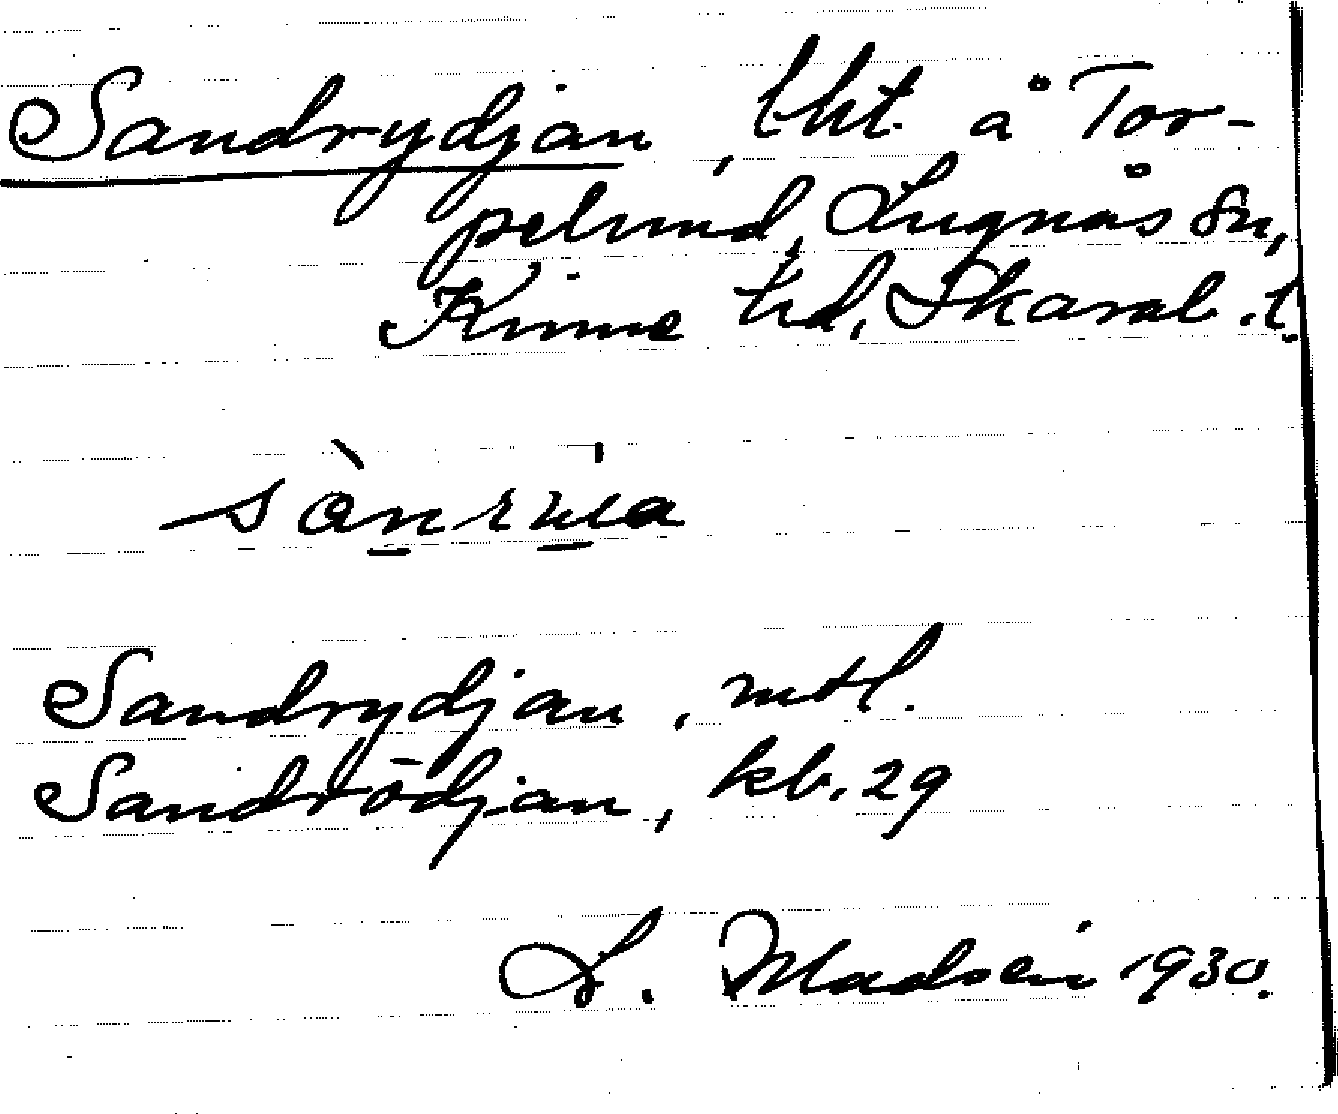 Sandrydjan, tht. å Tor-
pelund, Lugnås sn,
Kinne hd, Skarab. l.
sànrıea
Sandrydjan, mtl.
Sandrödjan, kb. 29
L. Madsén 1930.